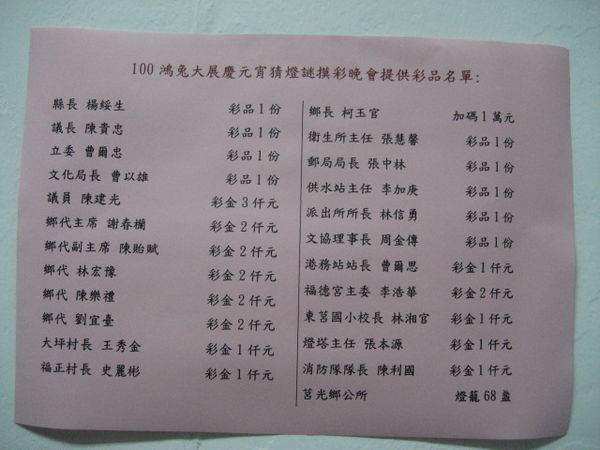 100 鴻兔大展慶元宵猜燈謎摸彩晚會提供彩品名單:
縣長 楊綏生 彩品1份
議長 陳貴忠 彩品1份
立委 曹爾忠 彩品1份
文化局長 曹以雄 彩品1份
議員 陳建光 彩金3仟元
鄉代主席 謝春欗 彩金2仟元
鄉代副主席 陳貽賦 彩金2仟元
鄉代 林宏豫 彩金2仟元
鄉代 陳樂禮 彩金2仟元
鄉代 劉宜臺 彩金2仟元
大坪村長 王秀金 彩金1仟元
福正村長 史麗彬 彩金1仟元
鄉長 柯玉官 加碼1萬元
衛生所主任 張慧馨 彩品1份
郵局局長 張中林 彩品1份
供水站主任 李加庚 彩品1份
派出所所長 林信勇 彩品1份
文協理事長 周金傳 彩品1份
港務站站長 曹爾思 彩金1仟元
福德宮主委 李浩華 彩金2仟元
東莒國小校長 林湘官 彩金1仟元
燈塔主任 張本源 彩金1仟元
消防隊隊長 陳利國 彩金1仟元
莒光鄉公所 燈籠68盞